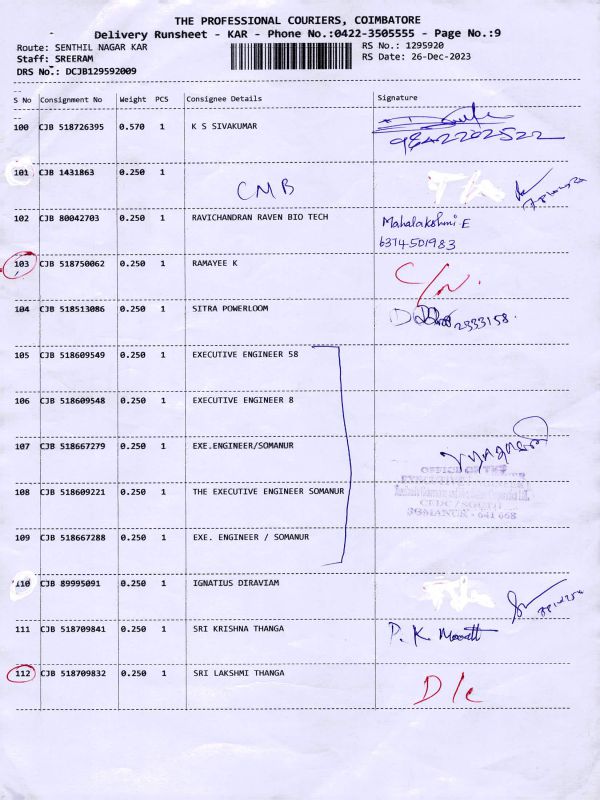 THE PROFESSIONAL COURIERS, COIMBATORE
Delivery Runsheet - KAR - Phone No.:0422-3505555 - Page No.:9
Route: SENTHIL NAGAR KAR RS No.: 1295920
Staff: SREERAM RS Date: 26-Dec-2023
DRS No.: DCJB129592009
S No Consignment No Weight PCS Consignee Details Signature
100 CJB 518726395 0.570 1 K S SIVAKUMAR
9842202522
101 CJB 1431863 0.250 1 CMB
102 CJB 80042703 0.250 1 RAVICHANDRAN RAVEN BIO TECH Mahalakshmi.E
6374501983
103 CJB 518750062 0.250 1 RAMAYEE K C/N.
104 CJB 518513086 0.250 1 SITRA POWERLOOM 2333158.
105 CJB 518609549 0.250 1 EXECUTIVE ENGINEER 58
106 CJB 518609548 0.250 1 EXECUTIVE ENGINEER 8
107 CJB 518667279 0.250 1 EXE.ENGINEER/SOMANUR
OFFICE OF THE
108 CJB 518609221 0.250 1 THE EXECUTIVE ENGINEER SOMANUR
CEDC/SOUTH
SOMANUR - 641 668
109 CJB 518667288 0.250 1 EXE. ENGINEER / SOMANUR
110 CJB 89995091 0.250 1 IGNATIUS DIRAVIAM
111 CJB 518709841 0.250 1 SRI KRISHNA THANGA P. K.
112 CJB 518709832 0.250 1 SRI LAKSHMI THANGA D/c